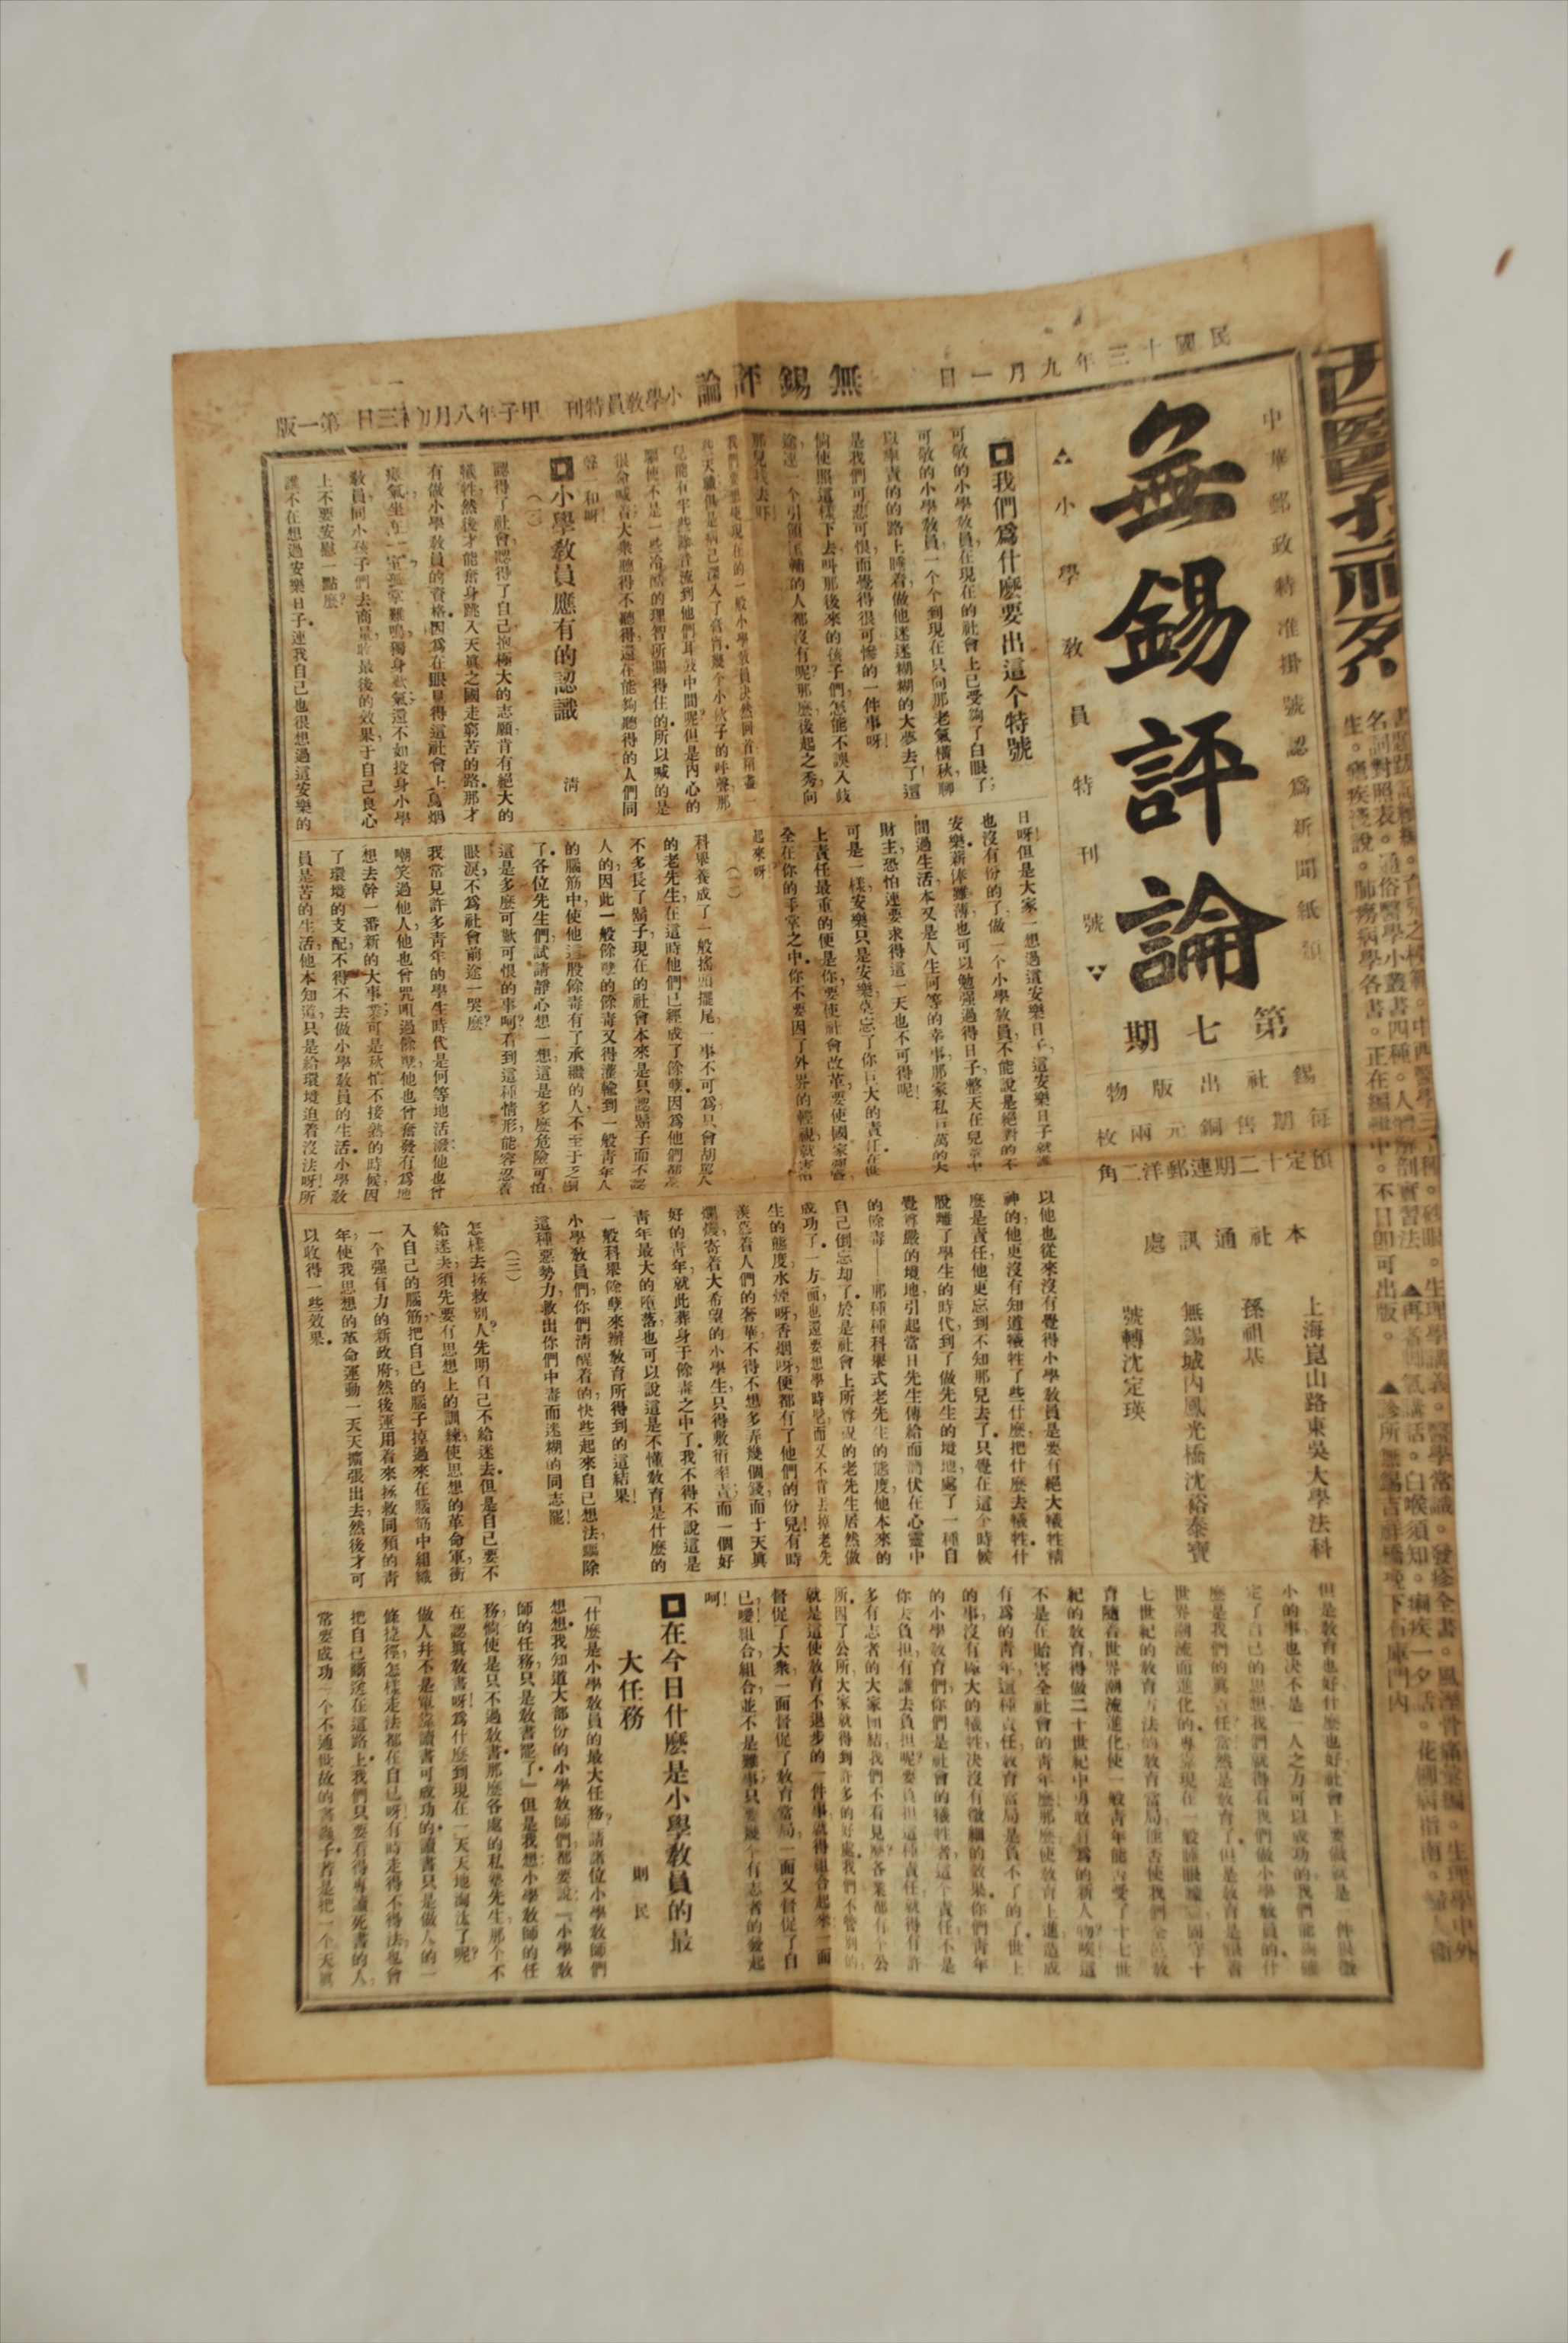 民國十三年九月一日
無錫評論
小學教員特刊
甲子年八月初三日
第一版
中華郵政特准掛號認爲新聞紙類
無錫評論
第七期
小學教員特刊號
錫社出版物
每期售銅元兩枚
預定十二期連郵洋二角
本社通訊處
上海崑山路東吳大學法科
孫祖基
無錫城內鳳光橋沈裕泰寶
號轉沈定瑛
我們爲什麽要出這个特號
可敬的小學敎員在現在的社會上已受夠了白眼了；
可敬的小學敎員，一个个到現在只向那老氣橫秋，聊
以率責的的路上睡着做他迷迷糊糊的大夢去了！這
是我們可悲可恨，而覺得很可慘的一件事呀！
倘使照這樣下去，叫那後來的孩子們，怎能不誤入歧
途，連一个引領匡輔的人都沒有呢？那麽，後起之秀，向
那兒找去吓！
很命喊着，大衆聽得不聽得，還在能夠聽得的人們同
聲一和呀！
小學敎員應有的認識
清
（一）
認得了社會，認得了自己抱極大的志願，肯有絕大的
犧牲，然後才能奮身跳入天眞之國，走窮苦的路，那才
有做小學敎員的資格。因爲在眼見得這社會上，烏烟
瘴氣，坐在一室，孤掌難鳴，獨身歎氣，還不如投身小學
敎員，同小孩子們去商量，收最後的效果，于自己良心
上不要安慰一點麽？
誰不在想過安樂日子。連我自己也很想過這安樂的
日呀！但是大家一想過這安樂日子，這安樂日子就誰
也沒有份的了。做一个小學敎員，不能說是絕對的不
安樂，薪俸雖薄，也可以勉强過得日子，整天在兒童中
間過生活，本又是人生何等的幸事，那家私巨萬的大
財主，恐怕連要求得這一天也不可得呢！
可是一樣，安樂只是安樂，莫忘了你巨大的責任，在世
上責任最重的便是你，要使社會改革，要使國家强盛，
全在你的手掌之中。你不要因了外界的輕視，就害怕
起來呀！
（二）
科舉養成了一般搖頭擺尾，一事不可爲，只會胡鬧人
的老先生，在這時他們已經成了餘孽。因爲他們都差
不多長了鬍子，現在的社會本來是只認鬍子而不認
人的，因此一般餘孽的餘毒又得灌輸到一般靑年人
的腦筋中，使他這股餘毒有了承繼的人，不至于乏嗣
了。各位先生們，試請靜心想一想，這是多麽危險可怕，
這是多麽可歎可恨的事呵？看到這種情形，能容忍着
眼淚，不爲社會前途一哭麽？
我常見許多靑年的學生時代是何等地活潑，他也曾
嘲笑過他人，他也曾咒唄過餘孽，他也曾奮發有爲地
想去幹一番新的大事業，可是秋忙不接熟的時候，因
了環境的支配，不得不去做小學敎員的生活。小學敎
員是苦的生活，他本知道，只是給環境迫着沒法呀！所
以他也從來沒有覺得小學敎員是要有絕大犧牲精
神的，他更沒有知道犧牲了些什麽，把什麽去犧牲。什
麽是責任，他更忘到不知那兒去了，只覺在這个時候
脫離了學生的時代，到了做先生的境地，處了一種自
覺尊嚴的境地，引起當日先生傳給而潛伏在心靈中
的餘毒——那種種科舉式老先生的態度，他本來的
自己倒忘却了，於是社會上所尊視的老先生居然做
成功了。一方面也還要想學時髦，而又不肯丟掉老先
生的態度，水煙呀，香烟呀，便都有了他們的份兒！有時
羨慕着人們的奢華，不得不想多弄幾個錢，而于天眞
爛熳，寄着大希望的小學生，只得敷衍率責，而一個好
好的靑年，就此葬身于餘毒之中了。我不得不說這是
靑年最大的墮落，也可以說這是不懂敎育是什麽的
一般科舉餘孽來辦敎育所得到的這結果！
小學敎員們，你們清醒着的，快些起來自己想法驅除
這種惡勢力，救出你們中毒而迷糊的同志罷！
（三）
怎樣去拯救別人？先明自己不給迷去。但是自己要不
給迷去，須先要有思想上的訓練，使思想的革命軍，衝
入自己的腦筋，把自己的腦子掉過來，在腦筋中組織
一个强有力的新政府，然後運用着來拯救同類的靑
年，使我思想的革命運動一天天擴張出去，然後才可
以收得一些效果。
但是敎育也好，什麽也好，社會上要做就是一件很微
小的事也决不是一人之力可以成功的，我們能夠確
定了自己的思想，我們就得看我們做小學敎員的，什
麽是我們的眞責任？當然是敎育了。但是敎育是跟着
世界潮流而進化的，專靠現在一般睡眼矇矓，固守十
七世紀的敎育方法的敎育當局，能否使我們全邑敎
育隨着世界潮流進化，使一般靑年能否受了十七世
紀的敎育，得做二十世紀中勇敢有爲的新人物？唉！這
不是在貽害全社會的靑年麽？那麽，使敎育上進，造成
有爲的靑年，這種責任，敎育當局是負不了的了。世上
的事，沒有極大的犧牲，决沒有微細的效果，你們靑年
的小學敎育們，你們是社會的犧牲者，這个責任，不是
你去負担，有誰去負担呢？要負担這種責任，就得有許
多有志者的大家團結，我們不看見麽？各業都有个公
所，因了公所，大家就得到許多的好處。我們不管別的，
就是這使敎育不退步的一件事，就得組合起來，一面
督促了大衆，一面督促了敎育當局，一面又督促了自
己，嗳！組合，組合，並不是難事，只要幾个有志者的發起
呵！
在今日什麽是小學敎員的最
大任務
則民
「什麽是小學敎員的最大任務？」請諸位小學敎師們
想想。我知道大部份的小學敎師們都要說：『小學敎
師的任務，只是敎書罷了。』但是我想小學敎師的任
務，倘使是只不過敎書，那麽各處的私塾先生，那个不
在認眞敎書呀！爲什麽到現在一天天地淘汰了呢？
做人幷不是單靠讀書可成功的，讀書只是做人的一
條捷徑，怎樣走法都在自己呀！有時走得不得法，也會
把自己斷送在這路上。我們只要看得專讀死書的人，
常要成功一个不通世故的書蟲子，若是把一个天眞